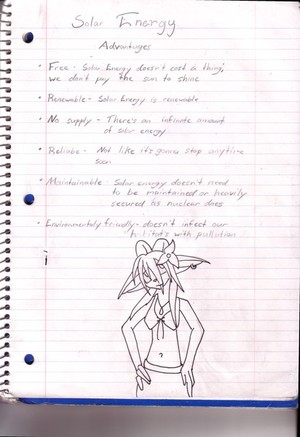 Solar Energy
Advantages
• Free - Solar Energy doesn't cost a thing,
we don't pay the sun to shine
• Renewable - Solar Energy is renewable
• No supply - There's an infinate amount
of solar energy
• Reliable - Not like it's gonna stop anytime
soon
• Maintainable - Solar energy doesn't need
to be maintained or heavily
secured as nuclear does
• Environmentaly friendly - doesn't infect our
habitats with pollution